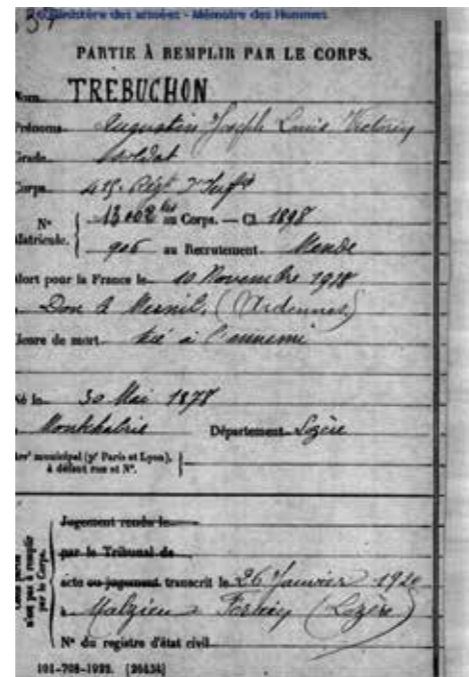 Ministère des armées - Mémoire des Hommes
PARTIE À REMPLIR PAR LE CORPS.
Nom TRÉBUCHON
Prénoms Augustin Joseph Louis Victorin
Grade Soldat
Corps 415e Régt d'Infie
N° 13002 bis au Corps. — Cl. 1898
Matricule. 906 au Recrutement Mende
Mort pour la France le 10 Novembre 1918
Don & Mesnil, (Ardennes)
Genre de mort tué à l'ennemi
Né le 30 Mai 1878
Département Lozère
Arr' municipal (pr Paris et Lyon),
à défaut rue et N°.
Jugement rendu le
par le Tribunal de
acte ou jugement transcrit le 26 Janvier 1920
à Malzieu (Lozère)
N° du registre d'état civil
101-708-1922. [26434]